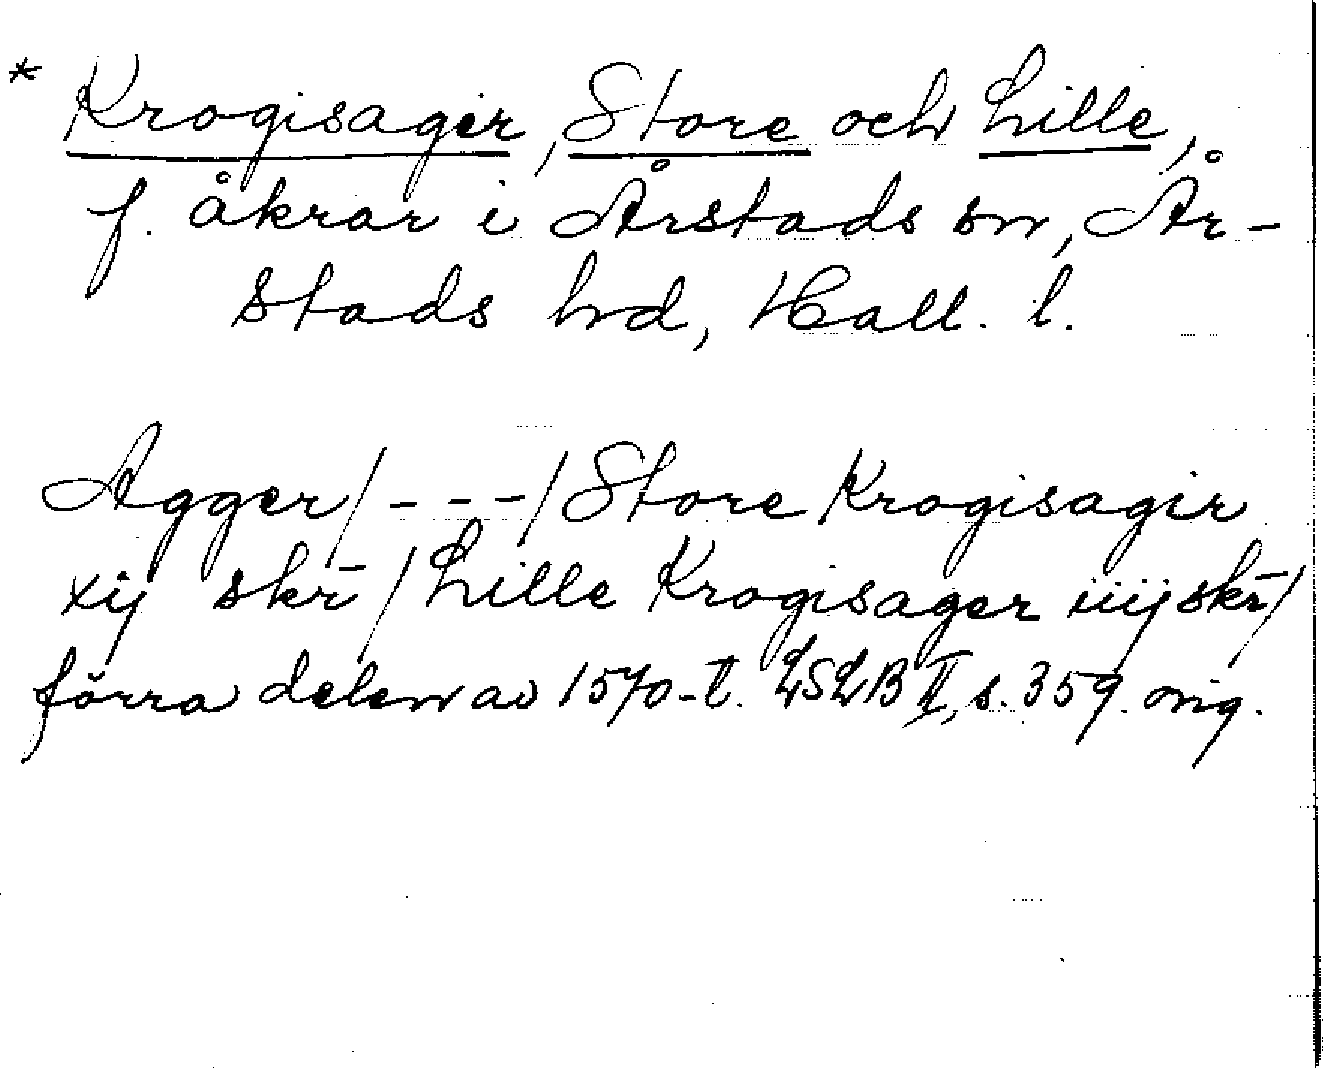 * Krogisager, Store och Lille,
f. åkrar i Årstads sn, År-
stads hd, Hall. l.
Agger/---/Store Krogisagir
xij skr̄/Lille Krogisager iiij skr̄/
förra delen av 1570-t. LSLB II, s. 359. orig.